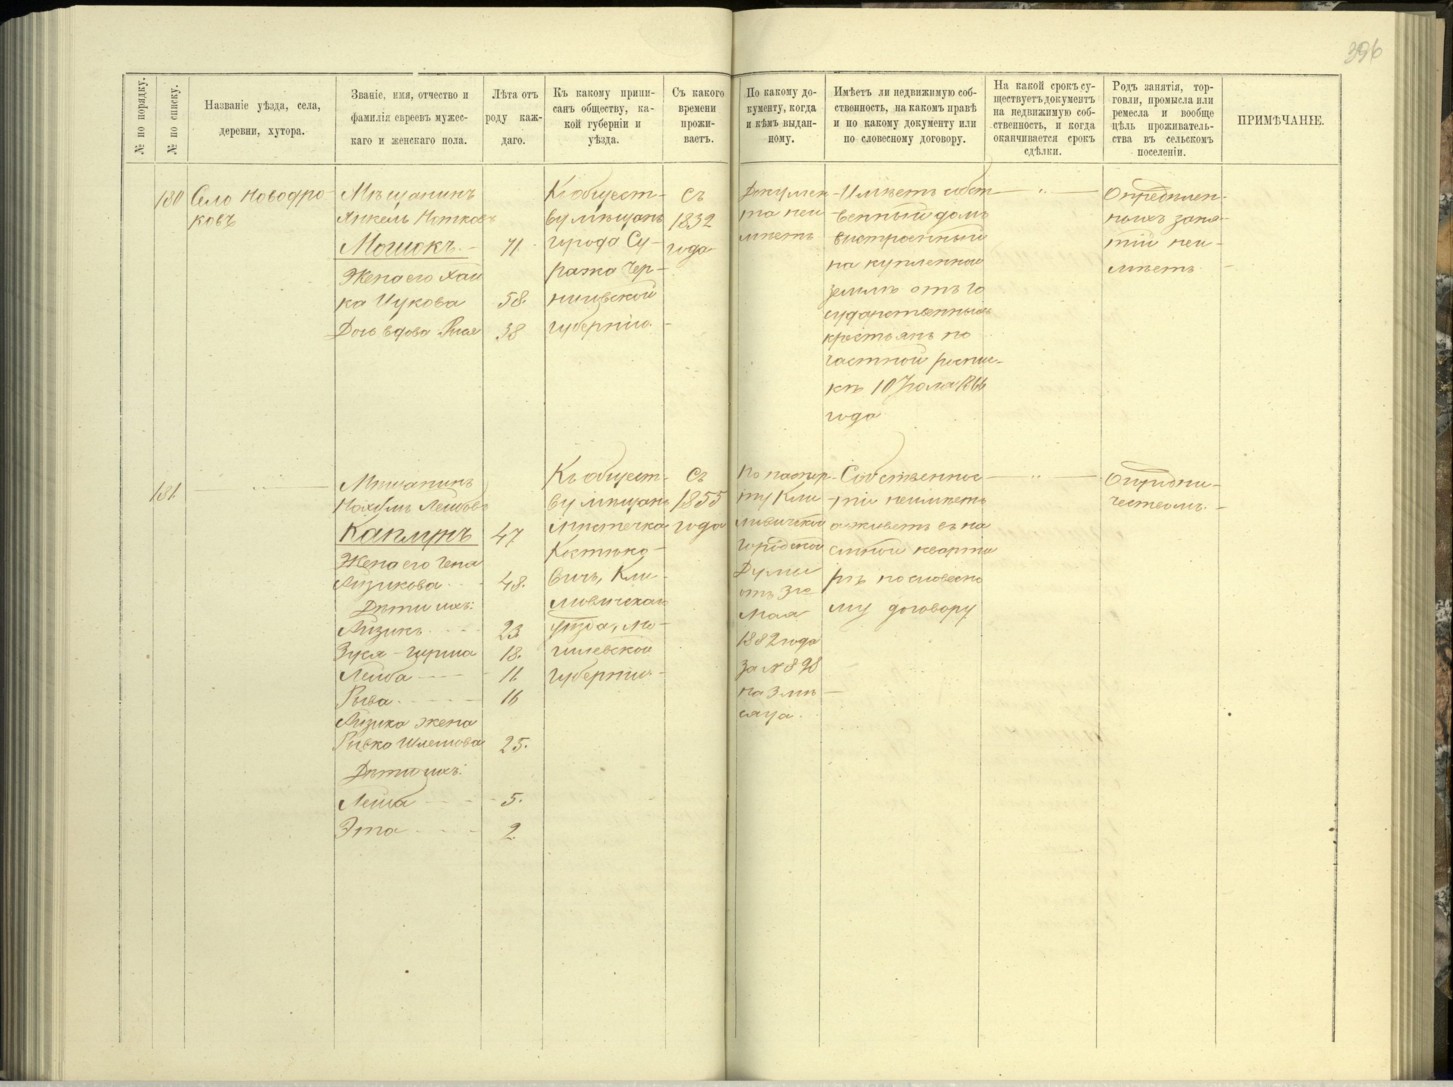 396
№ по порядку.
№ по списку.
Названіе уѣзда, села,
деревни, хутора.
Званіе, имя, отчество и
фамилія евреевъ мужес-
каго и женскаго пола.
Лѣта отъ
роду каж-
даго.
Къ какому припи-
санъ обществу, ка-
кой губерніи и
уѣзда.
Съ какого
времени
прожи-
ваетъ.
По какому до-
кументу, когда
и кѣмъ выдан-
ному.
Имѣетъ ли недвижимую соб-
ственность, на какомъ правѣ
и по какому документу или
по словесному договору.
На какой срокъ су-
ществуетъ документъ
на недвижимую соб-
ственность, и когда
оканчивается срокъ
сдѣлки.
Родъ занятія, тор-
говли, промысла или
ремесла и вообще
цѣль проживатель-
ства въ сельскомъ
поселеніи.
ПРИМѢЧАНІЕ.
180
Село Новодро-
ковъ
Мѣщанинъ
Янкель Нотковъ
Мошокъ 71
Жена его Хай
ка Ицкова 58.
Дочь вдова 38
Къ общест-
ву мѣщанъ
города Су-
ража Чер-
ниговской
губерніи
Съ
1832
года
Докумен-
та неи
мѣетъ
Имѣетъ собст
венный домъ
выстроенный
на купленной
землѣ отъ го
сударственныхъ
крестьянъ по
частной роспис-
кѣ 10 Іюля 1866
года
"
Опредѣлен-
ныхъ заня-
тій неи-
мѣетъ
181
"
Мѣщанинъ
Нохумъ Лейбовъ
Каплунъ 47
Жена его
Айзикова 48.
Дѣти ихъ:
Айзикъ 23
Зуся-Гирша 18.
Лейба 11
Рыва 16
Айзика жена
Ривка Шлемова 25.
Дѣти ихъ:
Лейба 5.
Эта 2
Къ общест-
ву мѣщанъ
мѣстечка
Костюко-
вичъ, Кли-
мовичскаго
уѣзда, Мо-
гилевской
губерніи
Съ
1855
года
По паспор-
ту Кли
мовичской
городской
Думы
отъ 3го
Мая
1882 года
за № 898
на 3 мѣ-
сяца.
Собственнос-
ти неимѣетъ
а живетъ въ на
емной кварти
рѣ по словесно
му договору
"